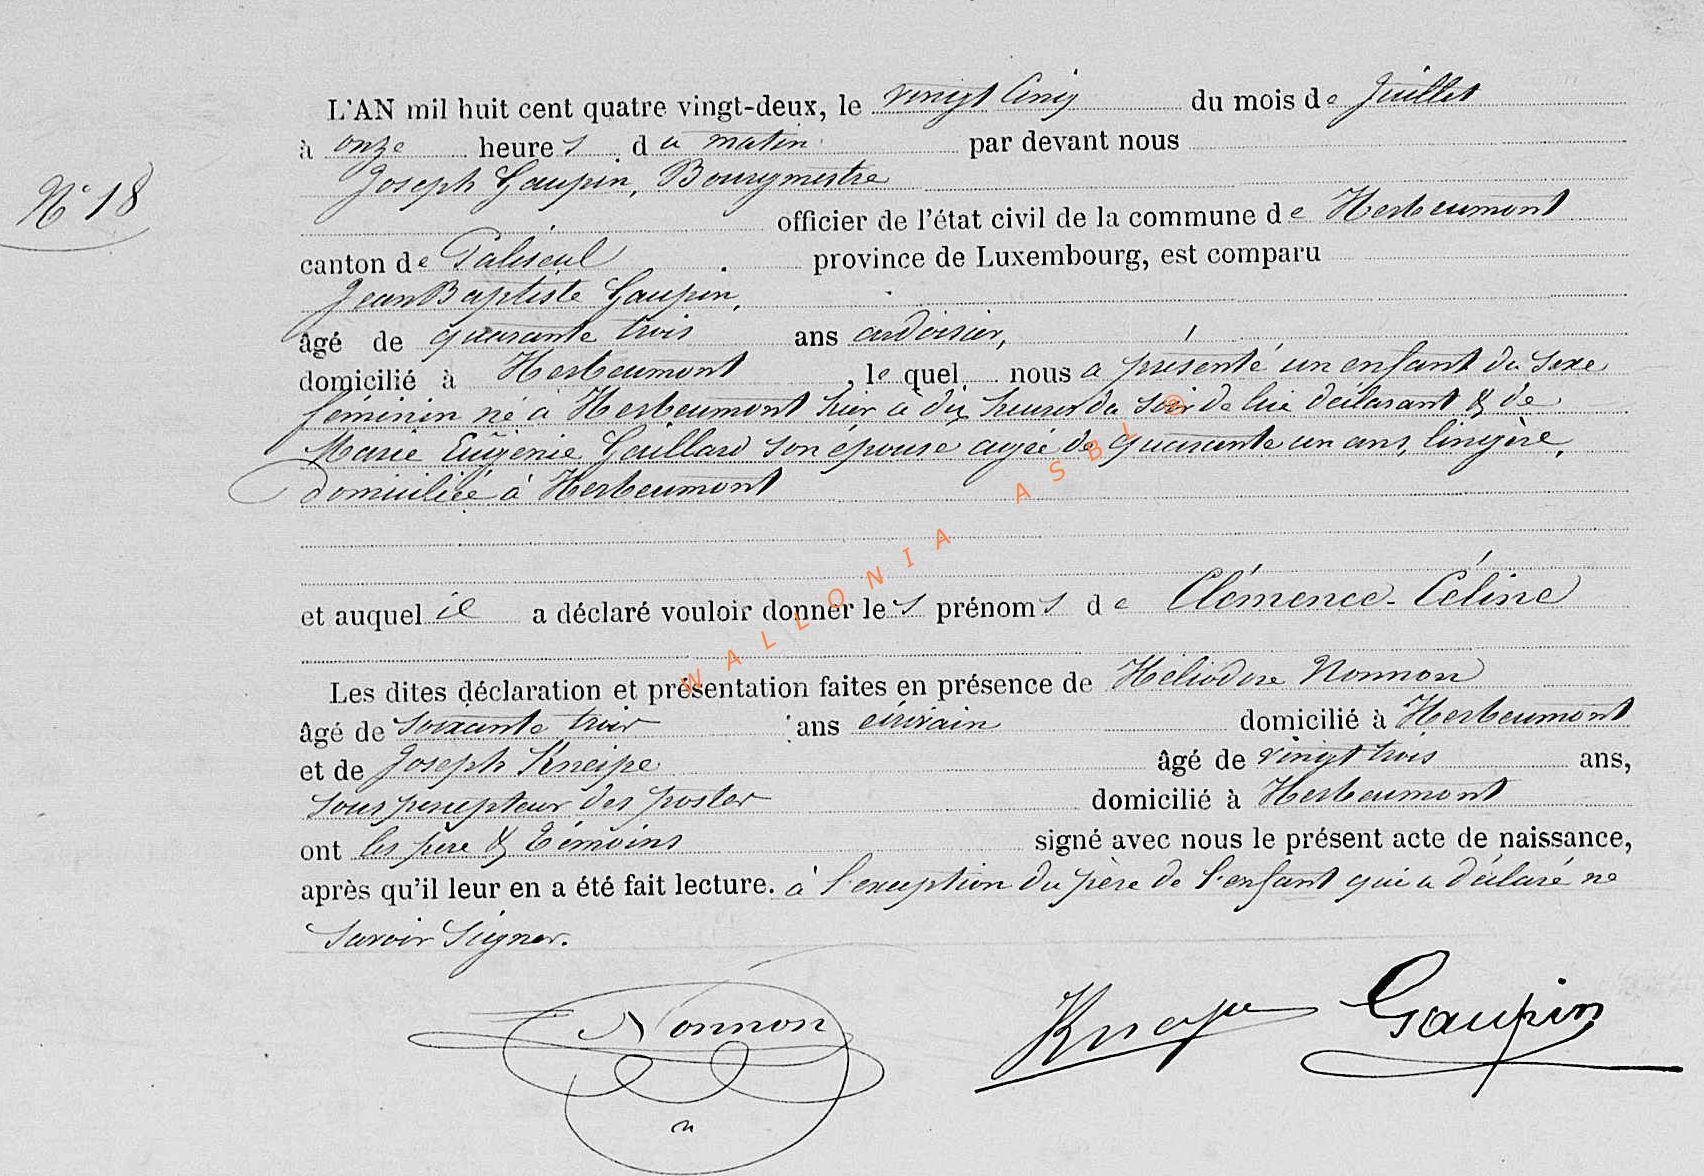 L'AN mil huit cent quatre vingt-deux, le vingt cinq du mois de Juillet
à onze heures du matin par devant nous
N° 18
Joseph Gaupin, Bourgmestre
officier de l'état civil de la commune de Herbeumont
canton de Paliseul province de Luxembourg, est comparu
Jean Baptiste Gaupin,
âgé de quarante trois ans ardoisier,
domicilié à Herbeumont, lequel nous a présenté un enfant du sexe
féminin né à Herbeumont hier à dix heures du soir de lui déclarant & de
Marie Eugénie Gaillard son épouse agée de quarante un ans, lingère,
domiciliée à Herbeumont
et auquel il a déclaré vouloir donner les prénoms de Clémence-Céline
Les dites déclaration et présentation faites en présence de Héliodore Nonnon
âgé de soixante trois ans écrivain domicilié à Herbeumont
et de Joseph Kneipe âgé de vingt trois ans,
sous percepteur des postes domicilié à Herbeumont
ont les père & témoins signé avec nous le présent acte de naissance,
après qu'il leur en a été fait lecture. à l'exception du père de l'enfant qui a déclaré ne
savoir signer.
Nonnon Kneipe Gaupin
WALLONIA ASBL ®